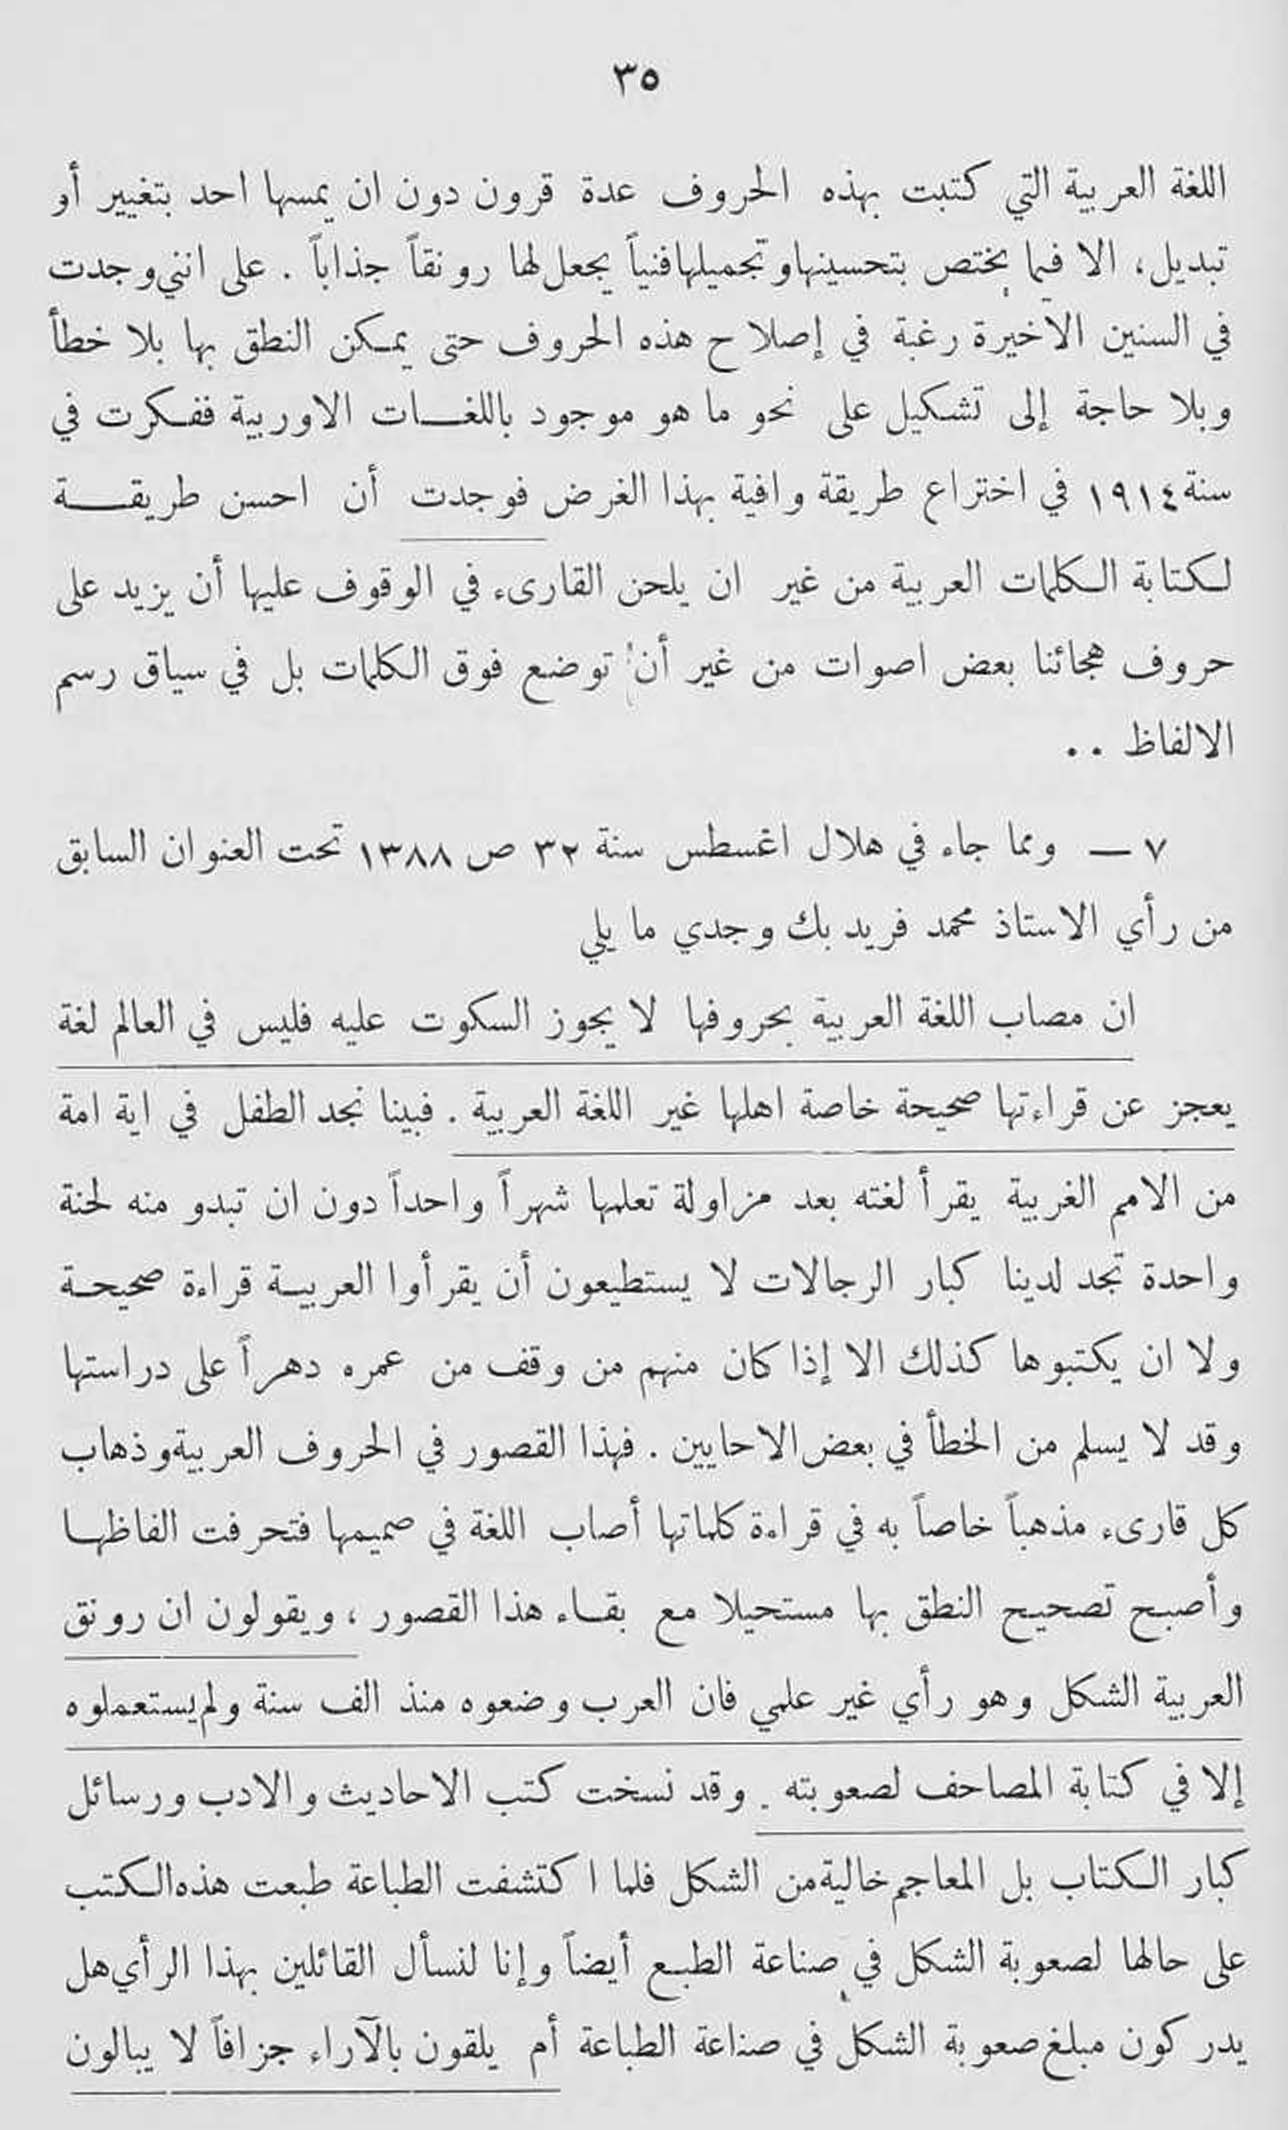 ٣٥
اللغة العربية التي كتبت بهذه الحروف عدة قرون دون ان يمسها احد بتغيير أو
تبديل، الا فيما يختص بتحسينها وتجميلها فنياً يجعل لها رونقاً جذاباً . على انني وجدت
في السنين الاخيرة رغبة في إصلاح هذه الحروف حتى يمكن النطق بها بلا خطأ
وبلا حاجة إلى تشكيل على نحو ما هو موجود باللغات الاوربية ففكرت في
سنة ١٩١٤ في اختراع طريقة وافية بهذا الغرض فوجدت أن احسن طريقة
لكتابة الكلمات العربية من غير ان يلحن القارىء في الوقوف عليها أن يزيد على
حروف هجائنا بعض اصوات من غير أن توضع فوق الكلمات بل في سياق رسم
الالفاظ ..
٧ — ومما جاء في هلال اغسطس سنة ٣٢ ص ١٣٨٨ تحت العنوان السابق
من رأي الاستاذ محمد فريد بك وجدي ما يلي
ان مصاب اللغة العربية بحروفها لا يجوز السكوت عليه فليس في العالم لغة
يعجز عن قراءتها صحيحة خاصة اهلها غير اللغة العربية . فبينا نجد الطفل في اية امة
من الامم الغربية يقرأ لغته بعد مزاولة تعلمها شهراً واحداً دون ان تبدو منه لحنة
واحدة تجد لدينا كبار الرجالات لا يستطيعون أن يقرأوا العربية قراءة صحيحة
ولا ان يكتبوها كذلك الا إذا كان منهم من وقف من عمره دهراً على دراستها
وقد لا يسلم من الخطأ في بعض الاحايين . فهذا القصور في الحروف العربية وذهاب
كل قارىء مذهباً خاصاً به في قراءة كلماتها أصاب اللغة في صميمها فتحرفت الفاظها
وأصبح تصحيح النطق بها مستحيلا مع بقاء هذا القصور ، ويقولون ان رونق
العربية الشكل وهو رأي غير علمي فان العرب وضعوه منذ الف سنة ولم يستعملوه
إلا في كتابة المصاحف لصعوبته . وقد نسخت كتب الاحاديث والادب ورسائل
كبار الكتاب بل المعاجم خالية من الشكل فلما اكتشفت الطباعة طبعت هذه الكتب
على حالها لصعوبة الشكل في صناعة الطبع أيضاً وإنا لنسأل القائلين بهذا الرأي هل
يدركون مبلغ صعوبة الشكل في صناعة الطباعة أم يلقون بالآراء جزافاً لا يبالون